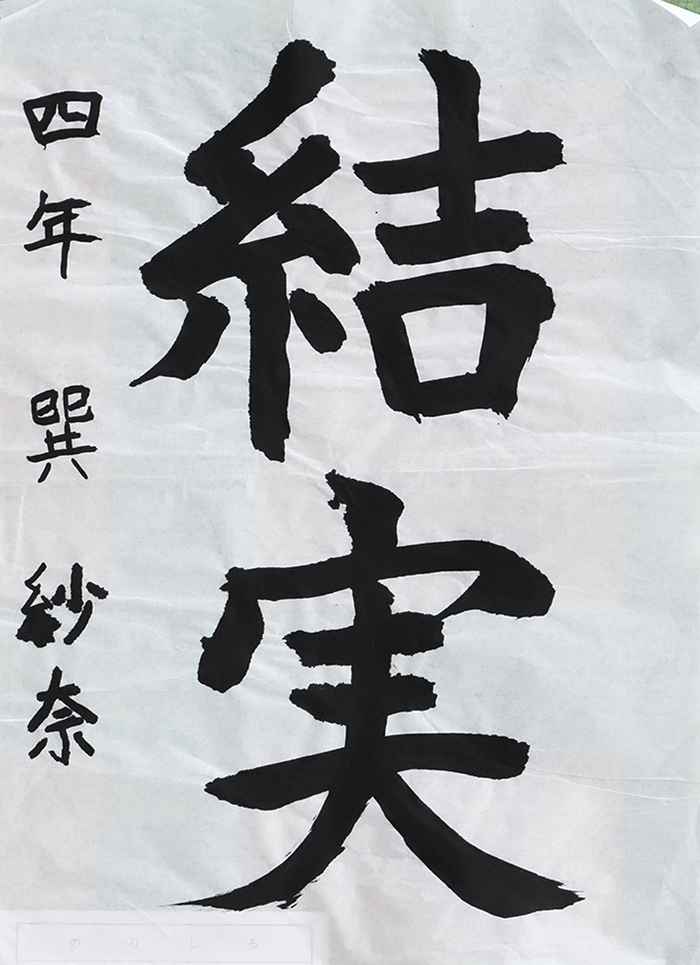 結実
四年 巽 紗奈
のりしろ